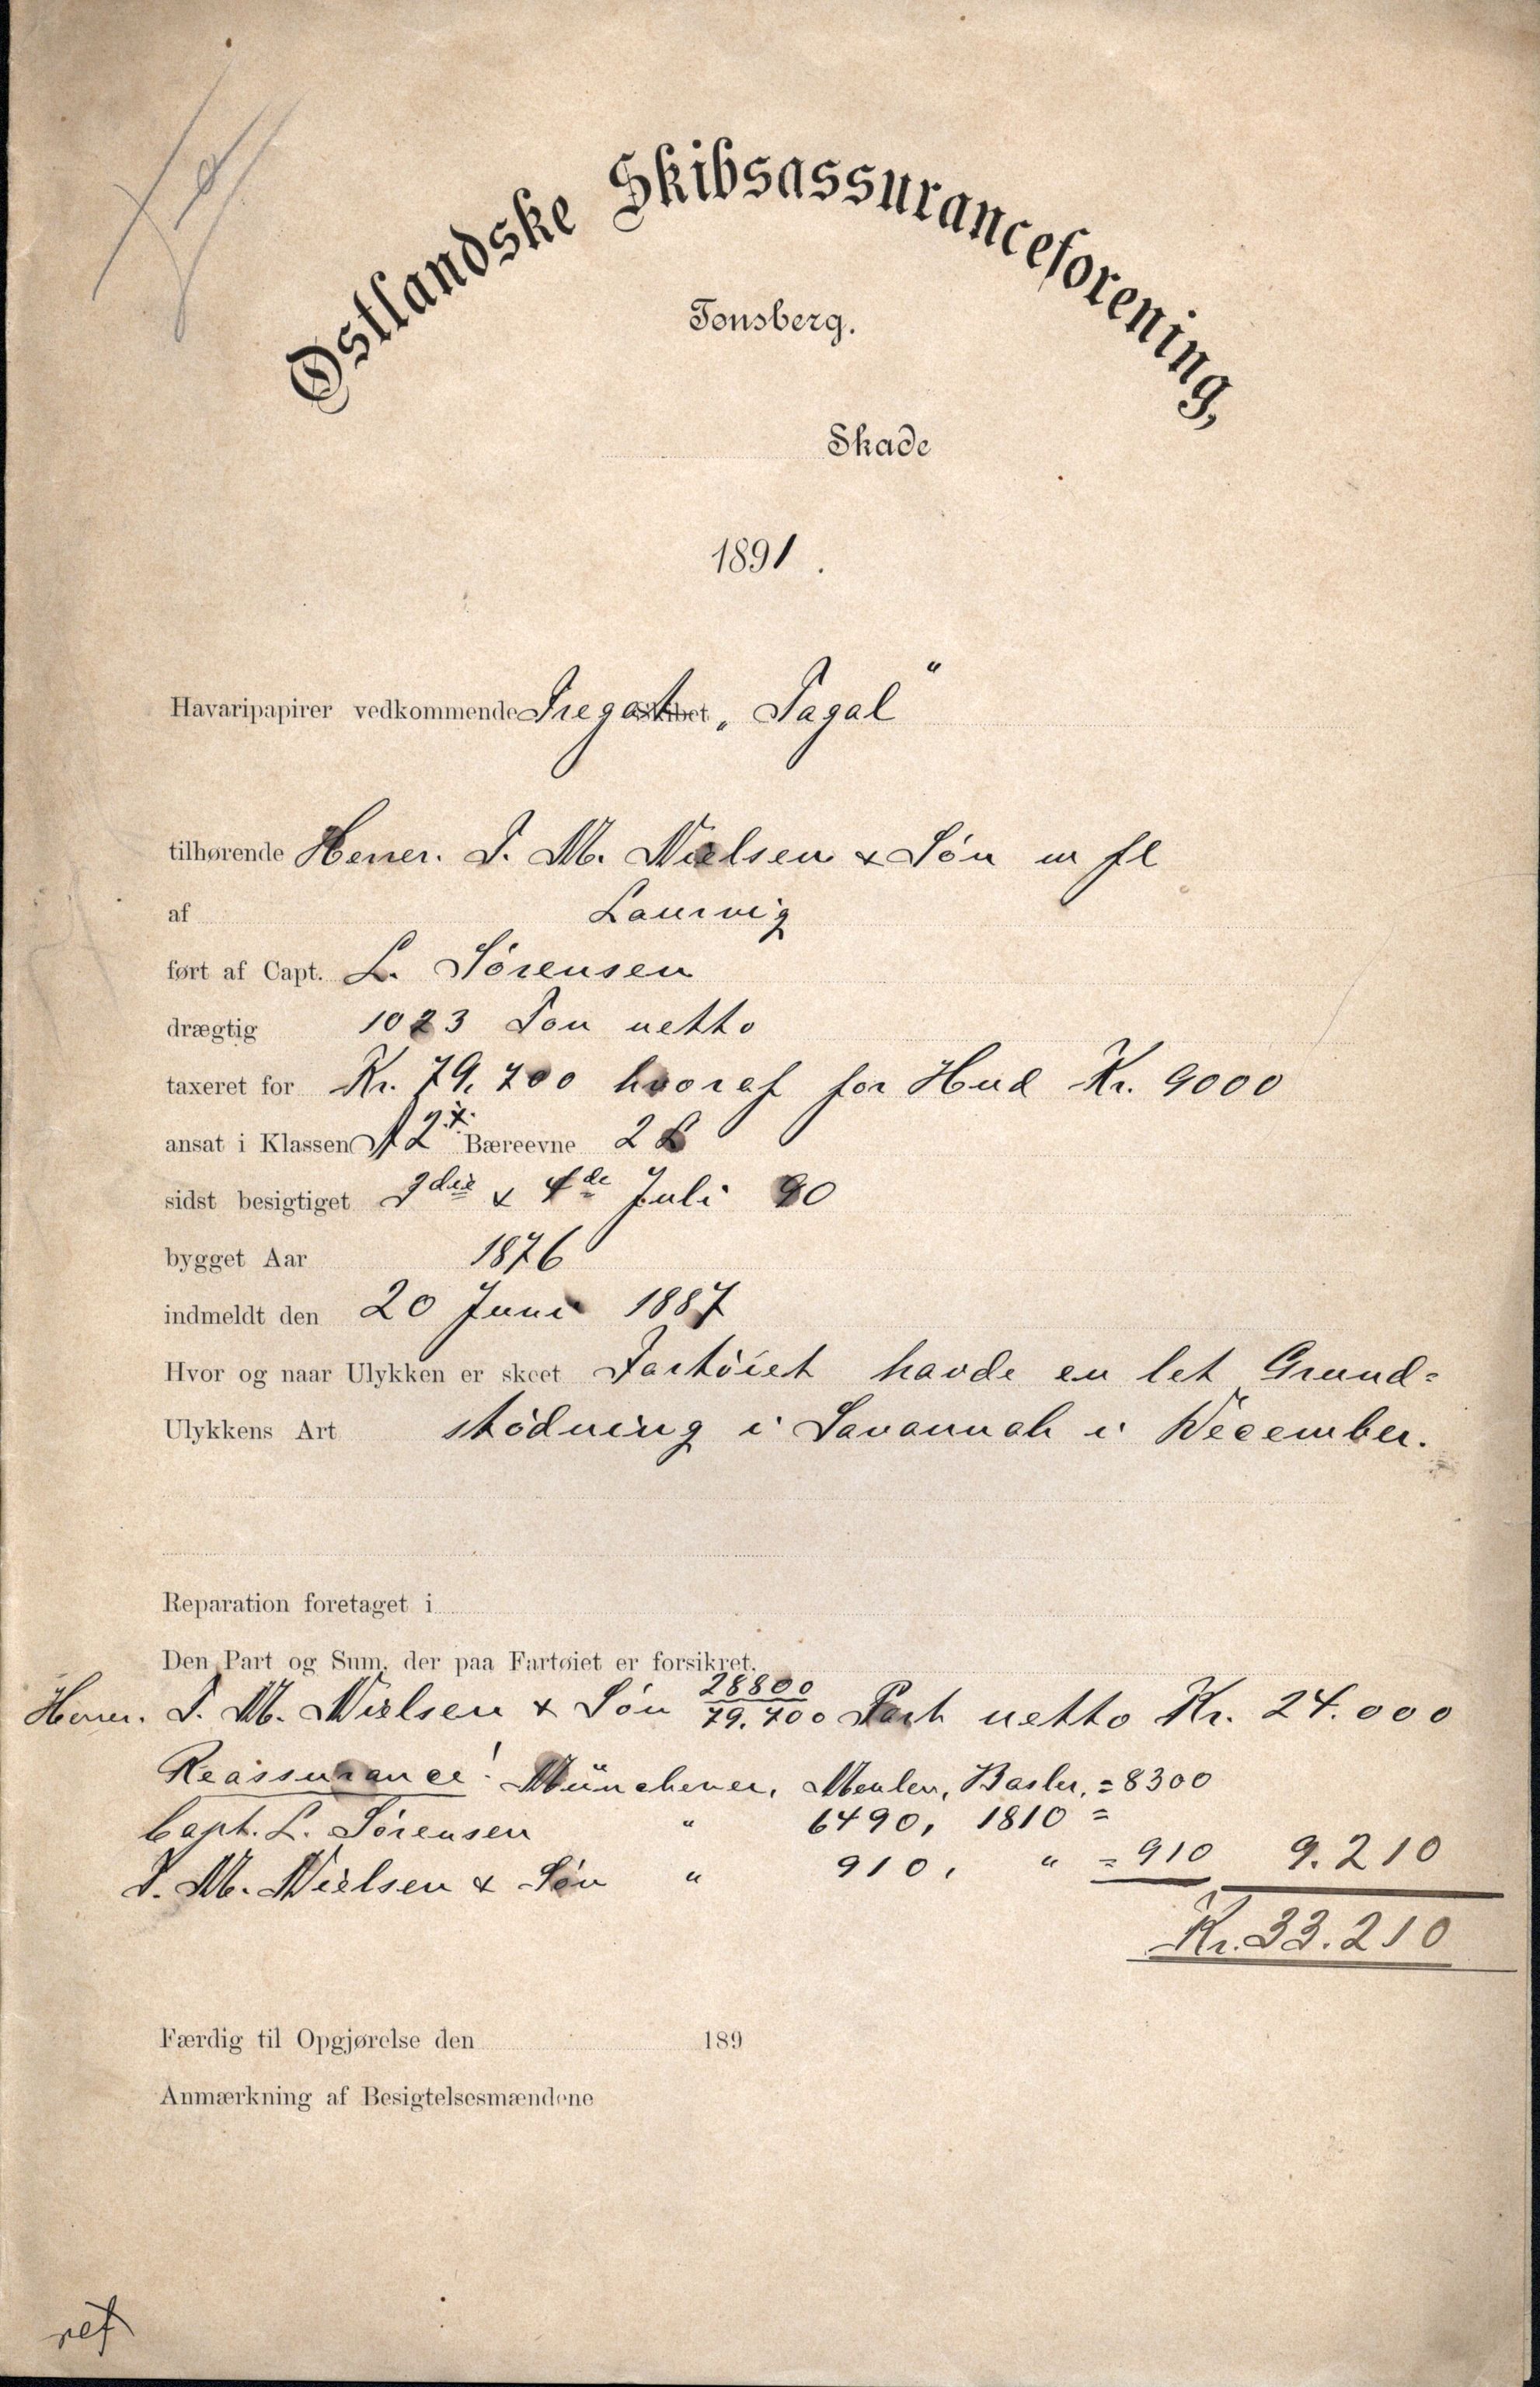 Østlandske Skibsassuranceforening,
Tønsberg.
Skade
1891.
Havaripapirer vedkommende Fregat Skibet „Fagal“
tilhørende Herrer. J. M. Nielsen & Søn m fl
af Laurvig
ført af Capt. L. Sørensen
drægtig 1023 Ton netto
taxeret for Kr. 79.700 hvoraf for Hud Kr. 9000
ansat i Klassen A 2 Bæreevne 2
sidst besigtiget 3die & 4de Juli 90
bygget Aar 1876
indmeldt den 20 Juni 1887
Hvor og naar Ulykken er skeet Fartöiet havde en let Grund=
Ulykkens Art stödning i Savannah i December.
Reparation foretaget i
Den Part og Sum, der paa Fartøiet er forsikret.
Herrer. J. M. Nielsen & Søn 28800/79.700 Part netto Kr. 24.000
Reassurance: Münchener, Basler, = 8300
Capt. L. Sørensen " 6490, 1810 =
J. M. Nielsen & Søn " 910, " = 910 9.210
Kr. 33.210
Færdig til Opgjørelse den 189
Anmærkning af Besigtelsesmændene
ref